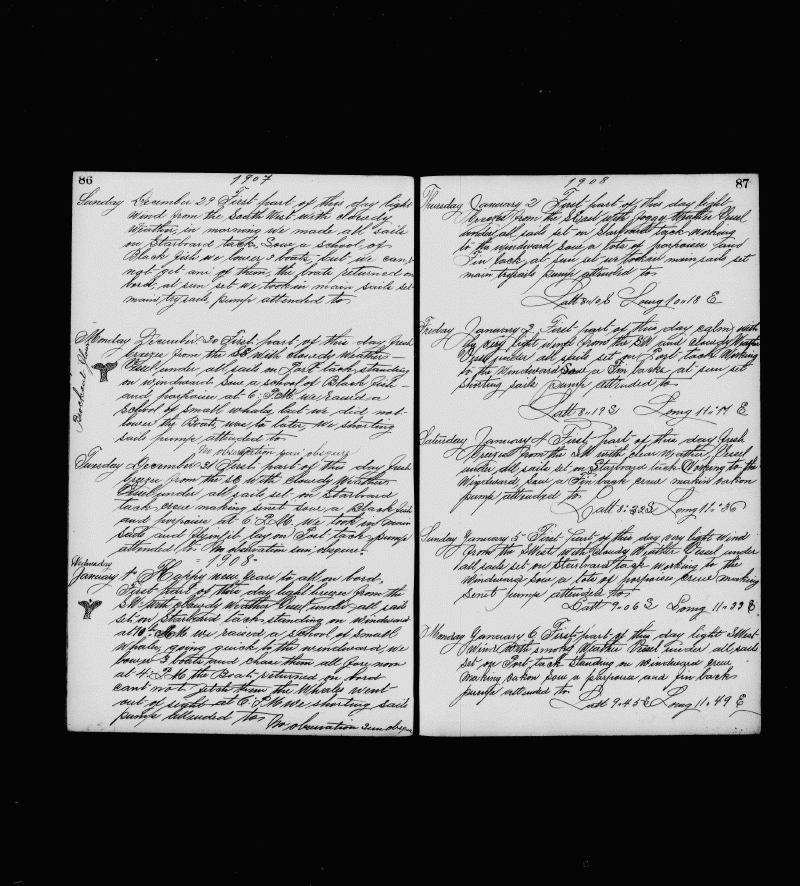 86
1907
Sunday December 29 First part of this day light
wind from the South West with clowdy
weather, in morning we made all sails
on Starboard tack, Saw a school of
Black fish we lower 3 boats, but we can
not get ani of them, the boats returned on
bord, at sun set we took in main sails set
main try sails pump attended to
Monday December 30 First part of this day fresh
breeze from the SE with clowdy weather
Vessel under all sails set on Port tack standing
on windward Saw a school of Black fish
and porpoise at 6 P.M. we raised a
School of small whales, but we did not
lower the Boats, was to later, we shorting
sails pump attended to
No observation sun obscure
Tuesday December 31 First part of this day fresh
breeze from the SE with clowdy weather
Vessel under all sails set on Starboard
tack crew making sinet saw a Black fish
and porpoise at 6 P.M. we took in main
sail and flyin jib lay on Port tack pump
attended to No observation sun obscure.
1908
Wednesday
January 1 Happy new year to all on bord.
First part of this day light breeze from the
SW with clowdy weather Vessel under all sails
set on Starboard tack, standing on windward
at 10 AM we raised a school of small
whales, going quick to the windward, we
lower 3 boats and chase them all fore noon
at 4 P.M. the Boats returned on bord
cant not them the whales went
out of sight at 6 P.M we shorting sails
pump attended to No observation Sun obscure
87
1908
Thursday January 2 First part of this day light
breeze from the with foggy weather Vessel
under all sails set on Starboard tack working
to the windward Saw a lots of porpoises and
Fin back, at sun set we took in main sails, set
main trysails pump attended to
Latt 8.10 S Long 10.18 E
Friday January 3 First part of this day calm, with
very light wind from the SW and clowdy weather
Vessel under all sails set on Port tack Working
to the Windward Saw a Fin backs at sun set
shorting sails pump attended to
Latt 8.19 S Long 11.17 E
Saturday January 4 First part of this day fresh
breeze from the SW with clear weather, Vessel
under all sails set on Starboard tack Working to the
Windward, saw a Fin back crew makin
pump attended to
Latt 8.32 S Long 11.36
Sunday January 5 First part of this day very light wind
from the SWest with weather Vessel under
all sails set on Starboard tack working to the
Windward saw a lots of porpoises crew making
sinet pump attended to
Latt 9.06 S Long 11.33 E.
Monday January 6 First part of this day light SWest
Wind with smoky weather Vessel under all sails
set on Port tack Standing on Windward crew
making saw a porpoise and fin back
pump attended to
Latt 9.45 S Long 11.49 E